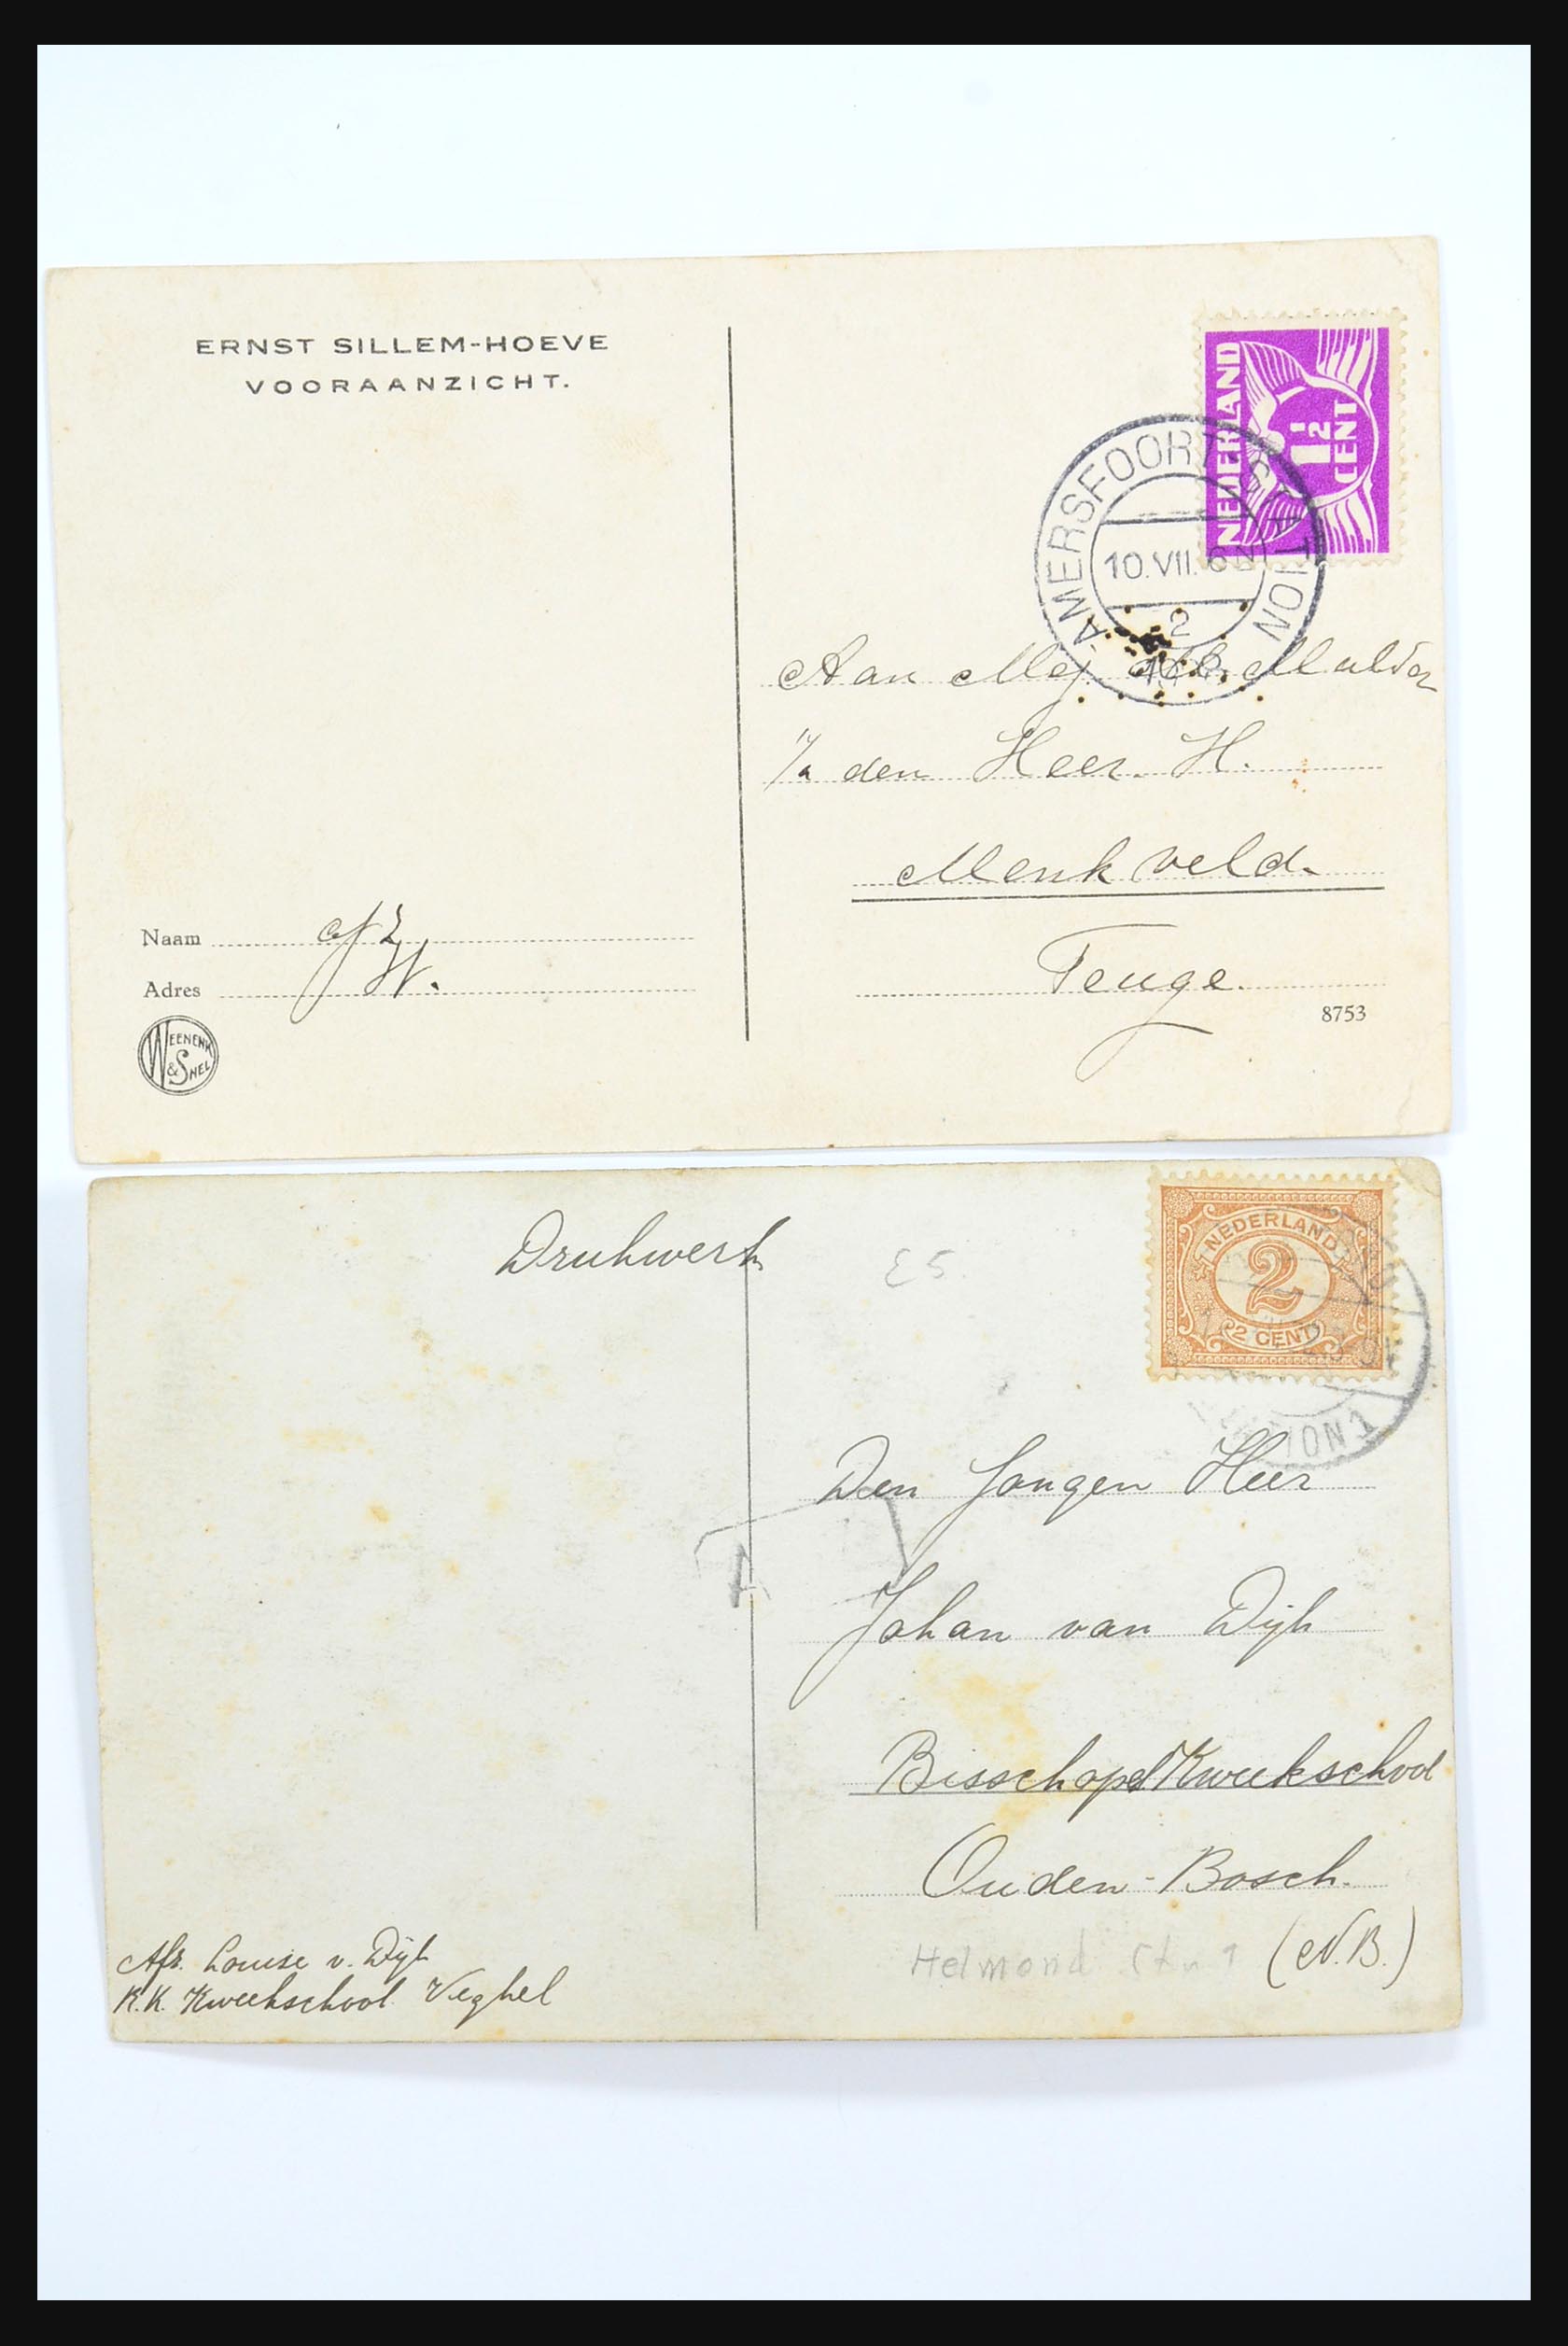 ERNST SILLEM-HOEVE
VOORAANZICHT.
NEDERLAND
1½
CENT
AMERSFOORT-STATION
10.VII.
2
Aan Mej. Mulder
p/a den Heer. H.
Menkveld.
Teuge.
8753
Naam
Adres
W.
WEENENK
& SNEL
Drukwerk
E5
NEDERLAND
2
2 CENT
Den Jongen Heer
Johan van Dijk
Bisschop Kweekschool
Ouden-Bosch.
(N.B.)
Helmond Stn 1
Afz. Louise v. Dijk
K.K. Kweekschool Veghel